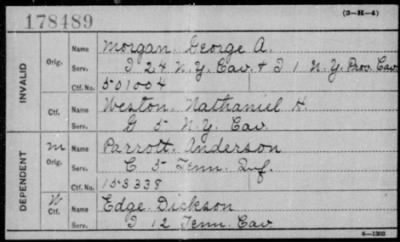 178489
(3-H-4)
INVALID
Orig.
Name Morgan George A.
Serv. I 24 N.Y. Cav & I 1 N.Y. Prov. Cav
Ctf. No. 501004
Ctf.
Name Weston Nathaniel H.
Serv. G 5 N.Y. Cav
DEPENDENT
M
Orig.
Name Parrott Anderson
Serv. C 5 Tenn. Inf.
Ctf. No. 153338
W
Ctf.
Name Edge Dickson
Serv. I 12 Tenn. Cav